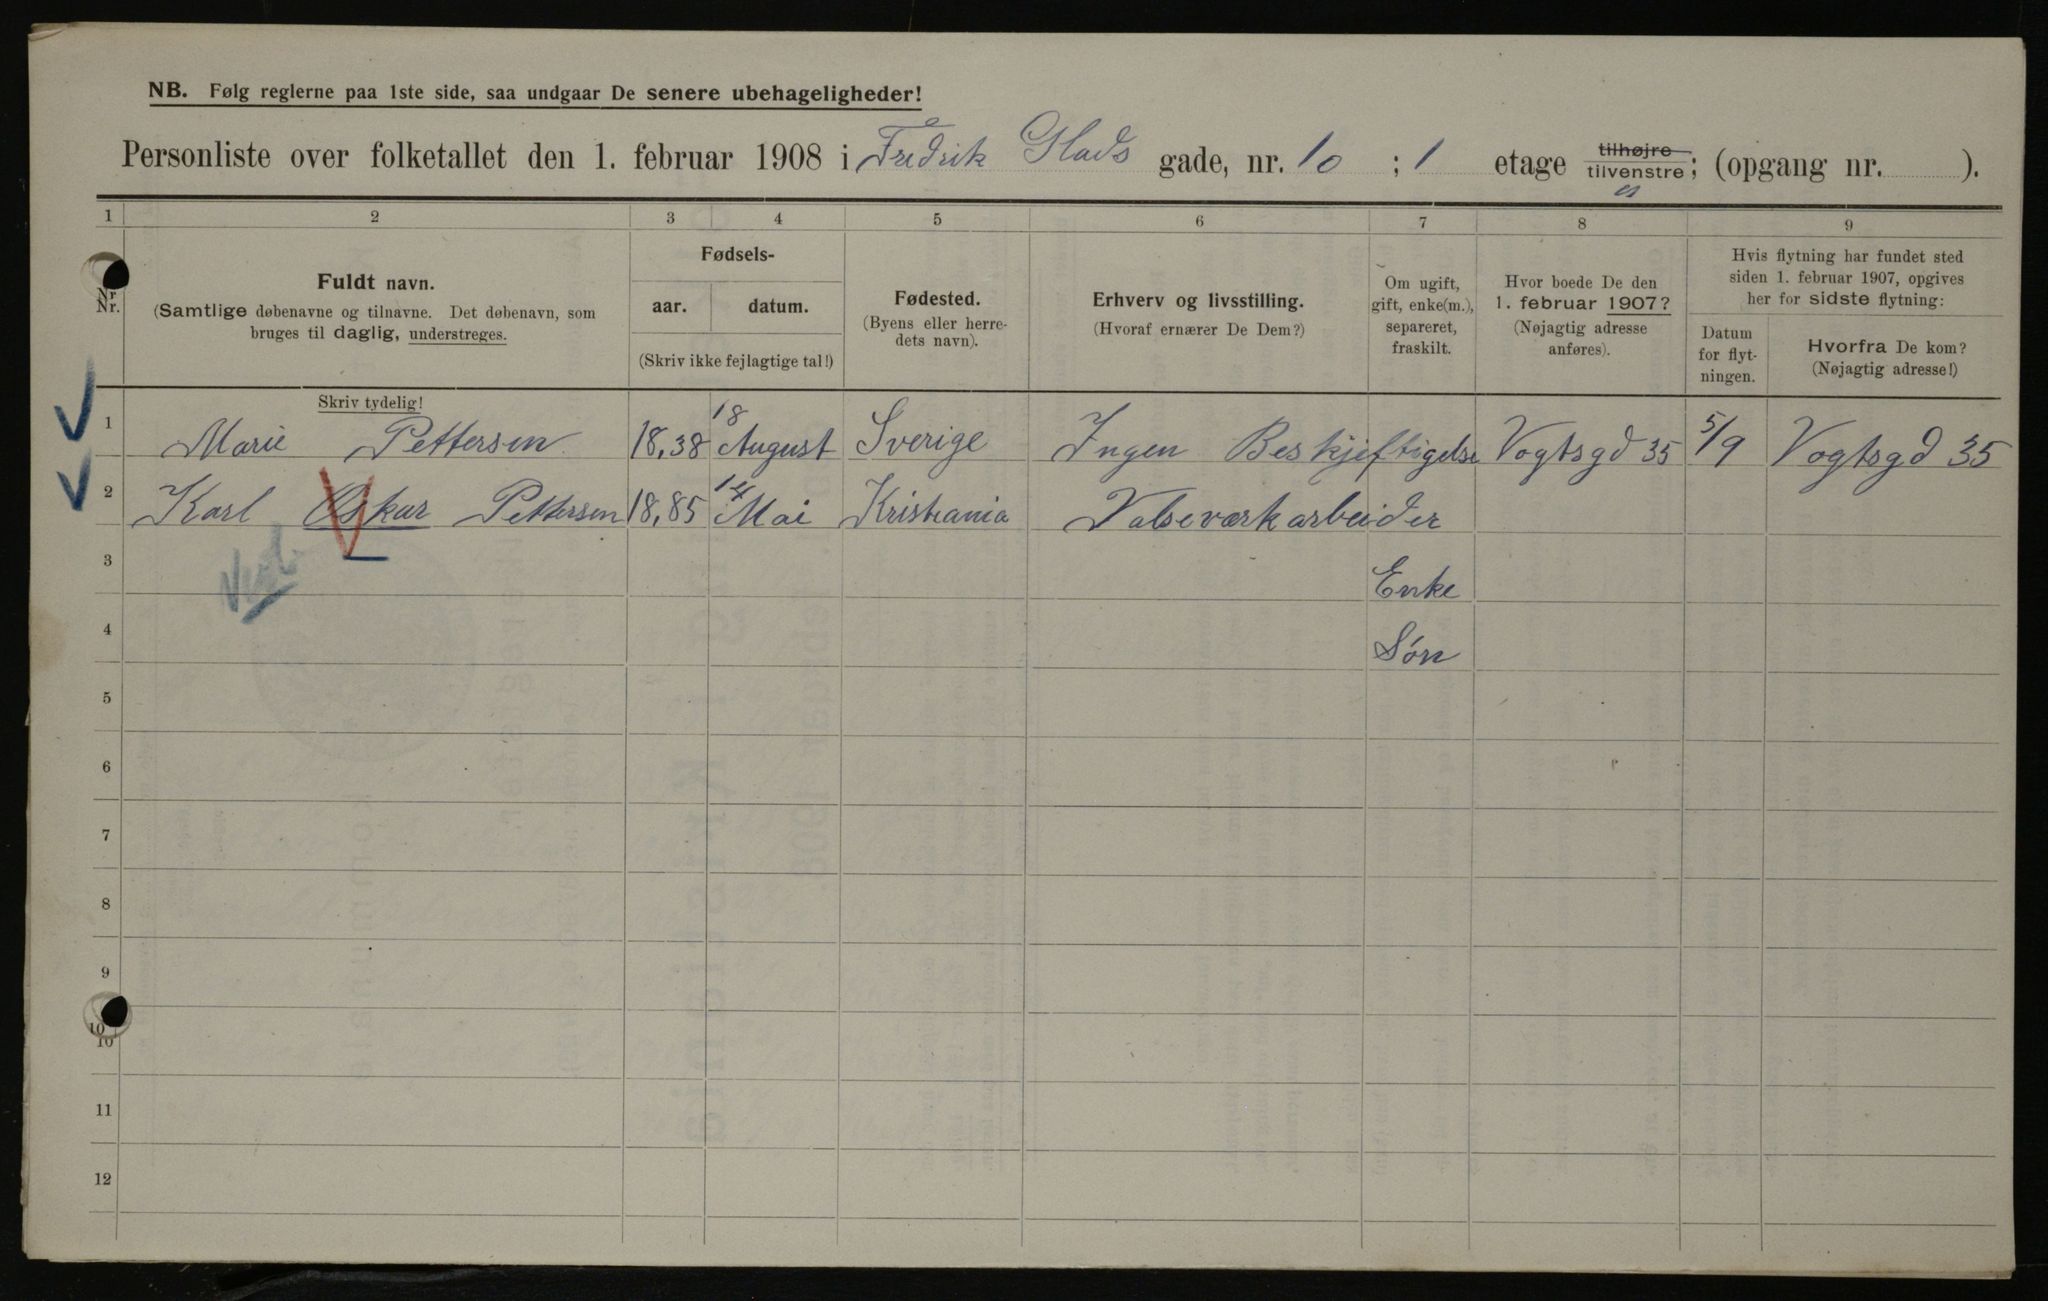 NB. Følg reglerne paa 1ste side, saa undgaar De senere ubehageligheder!
Personliste over folketallet den 1. februar 1908 i Fredrik Glads gade, nr. 10 ; 1 etage tilhøjre tilvenstre; (opgang nr. ).
1 2 3 4 5 6 7 8 9
Nr.
Nr.
Fuldt navn.
(Samtlige døbenavne og tilnavne. Det døbenavn, som
bruges til daglig, understreges.
Skriv tydelig!
Fødsels-
aar. datum.
(Skriv ikke fejlagtige tal!)
Fødested.
(Byens eller herre-
dets navn).
Erhverv og livsstilling.
(Hvoraf ernærer De Dem?)
Om ugift,
gift, enke(m.),
separeret,
fraskilt.
Hvor boede De den
1. februar 1907?
(Nøjagtig adresse
anføres).
Hvis flytning har fundet sted
siden 1. februar 1907, opgives
her for sidste flytning:
Datum
for flyt-
ningen.
Hvorfra De kom?
(Nøjagtig adresse!)
1 Marie Pettersen 18,38 18 August Sverige Ingen Beskjeftigelse Vogtsgd 35 5/9 Vogtsgd 35
2 Karl Oskar Pettersen 18,85 14 Mai Kristiania Valseværkarbeider
3 Enke
4 Sön
5
6
7
8
9
10
10
11
12